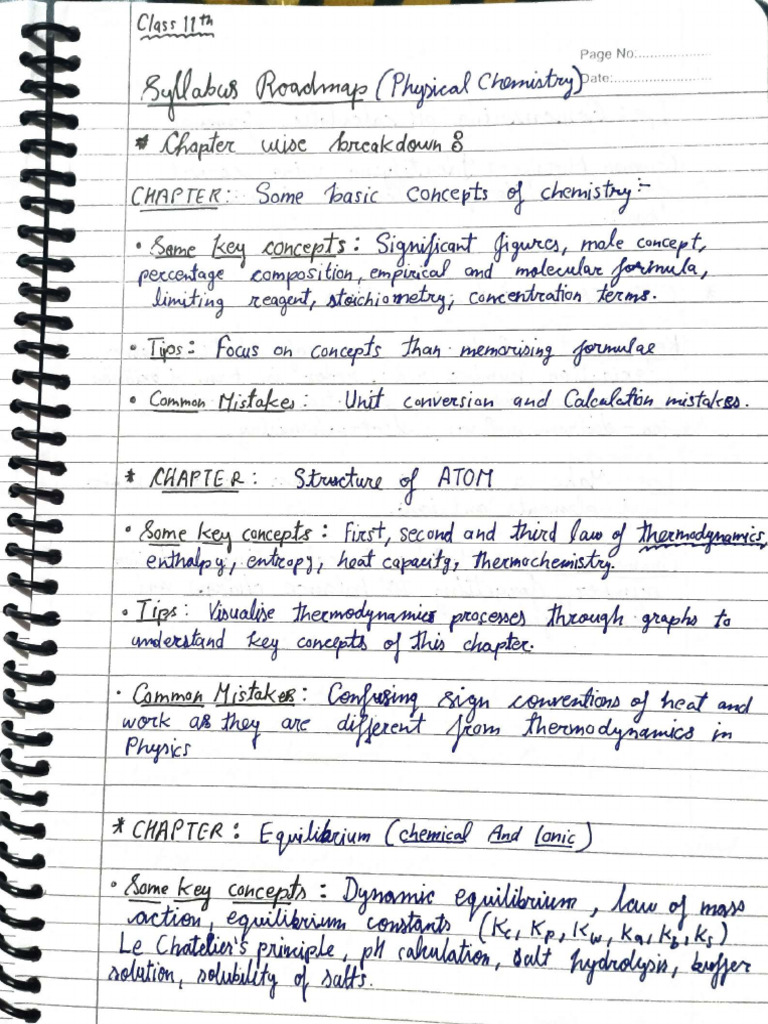 Class 11th
Page No:
Syllabus Roadmap (Physical Chemistry)
Date:
* Chapter wise breakdown :
CHAPTER: Some basic concepts of chemistry:-
• Some key concepts: Significant figures, mole concept,
percentage composition, empirical and molecular formula,
limiting reagent, stoichiometry, concentration terms.
• Tips: Focus on concepts than memorising formulae
• Common Mistakes: Unit conversion and Calculation mistakes.
* CHAPTER: Structure of ATOM
• Some key concepts: First, second and third law of thermodynamics,
enthalpy, entropy, heat capacity, thermochemistry.
• Tips: Visualise thermodynamics processes through graphs to
understand key concepts of this chapter.
• Common Mistakes: Confusing sign conventions of heat and
work as they are different from thermodynamics in
Physics
* CHAPTER: Equilibrium (chemical And Ionic)
• Some key concepts: Dynamic equilibrium, law of mass
action, equilibrium constants (Kc, Kp, Kw, Ka, Kb, Ks)
Le Chatelier's principle, pH calculation, salt hydrolysis, buffer
solution, solubility of salts.